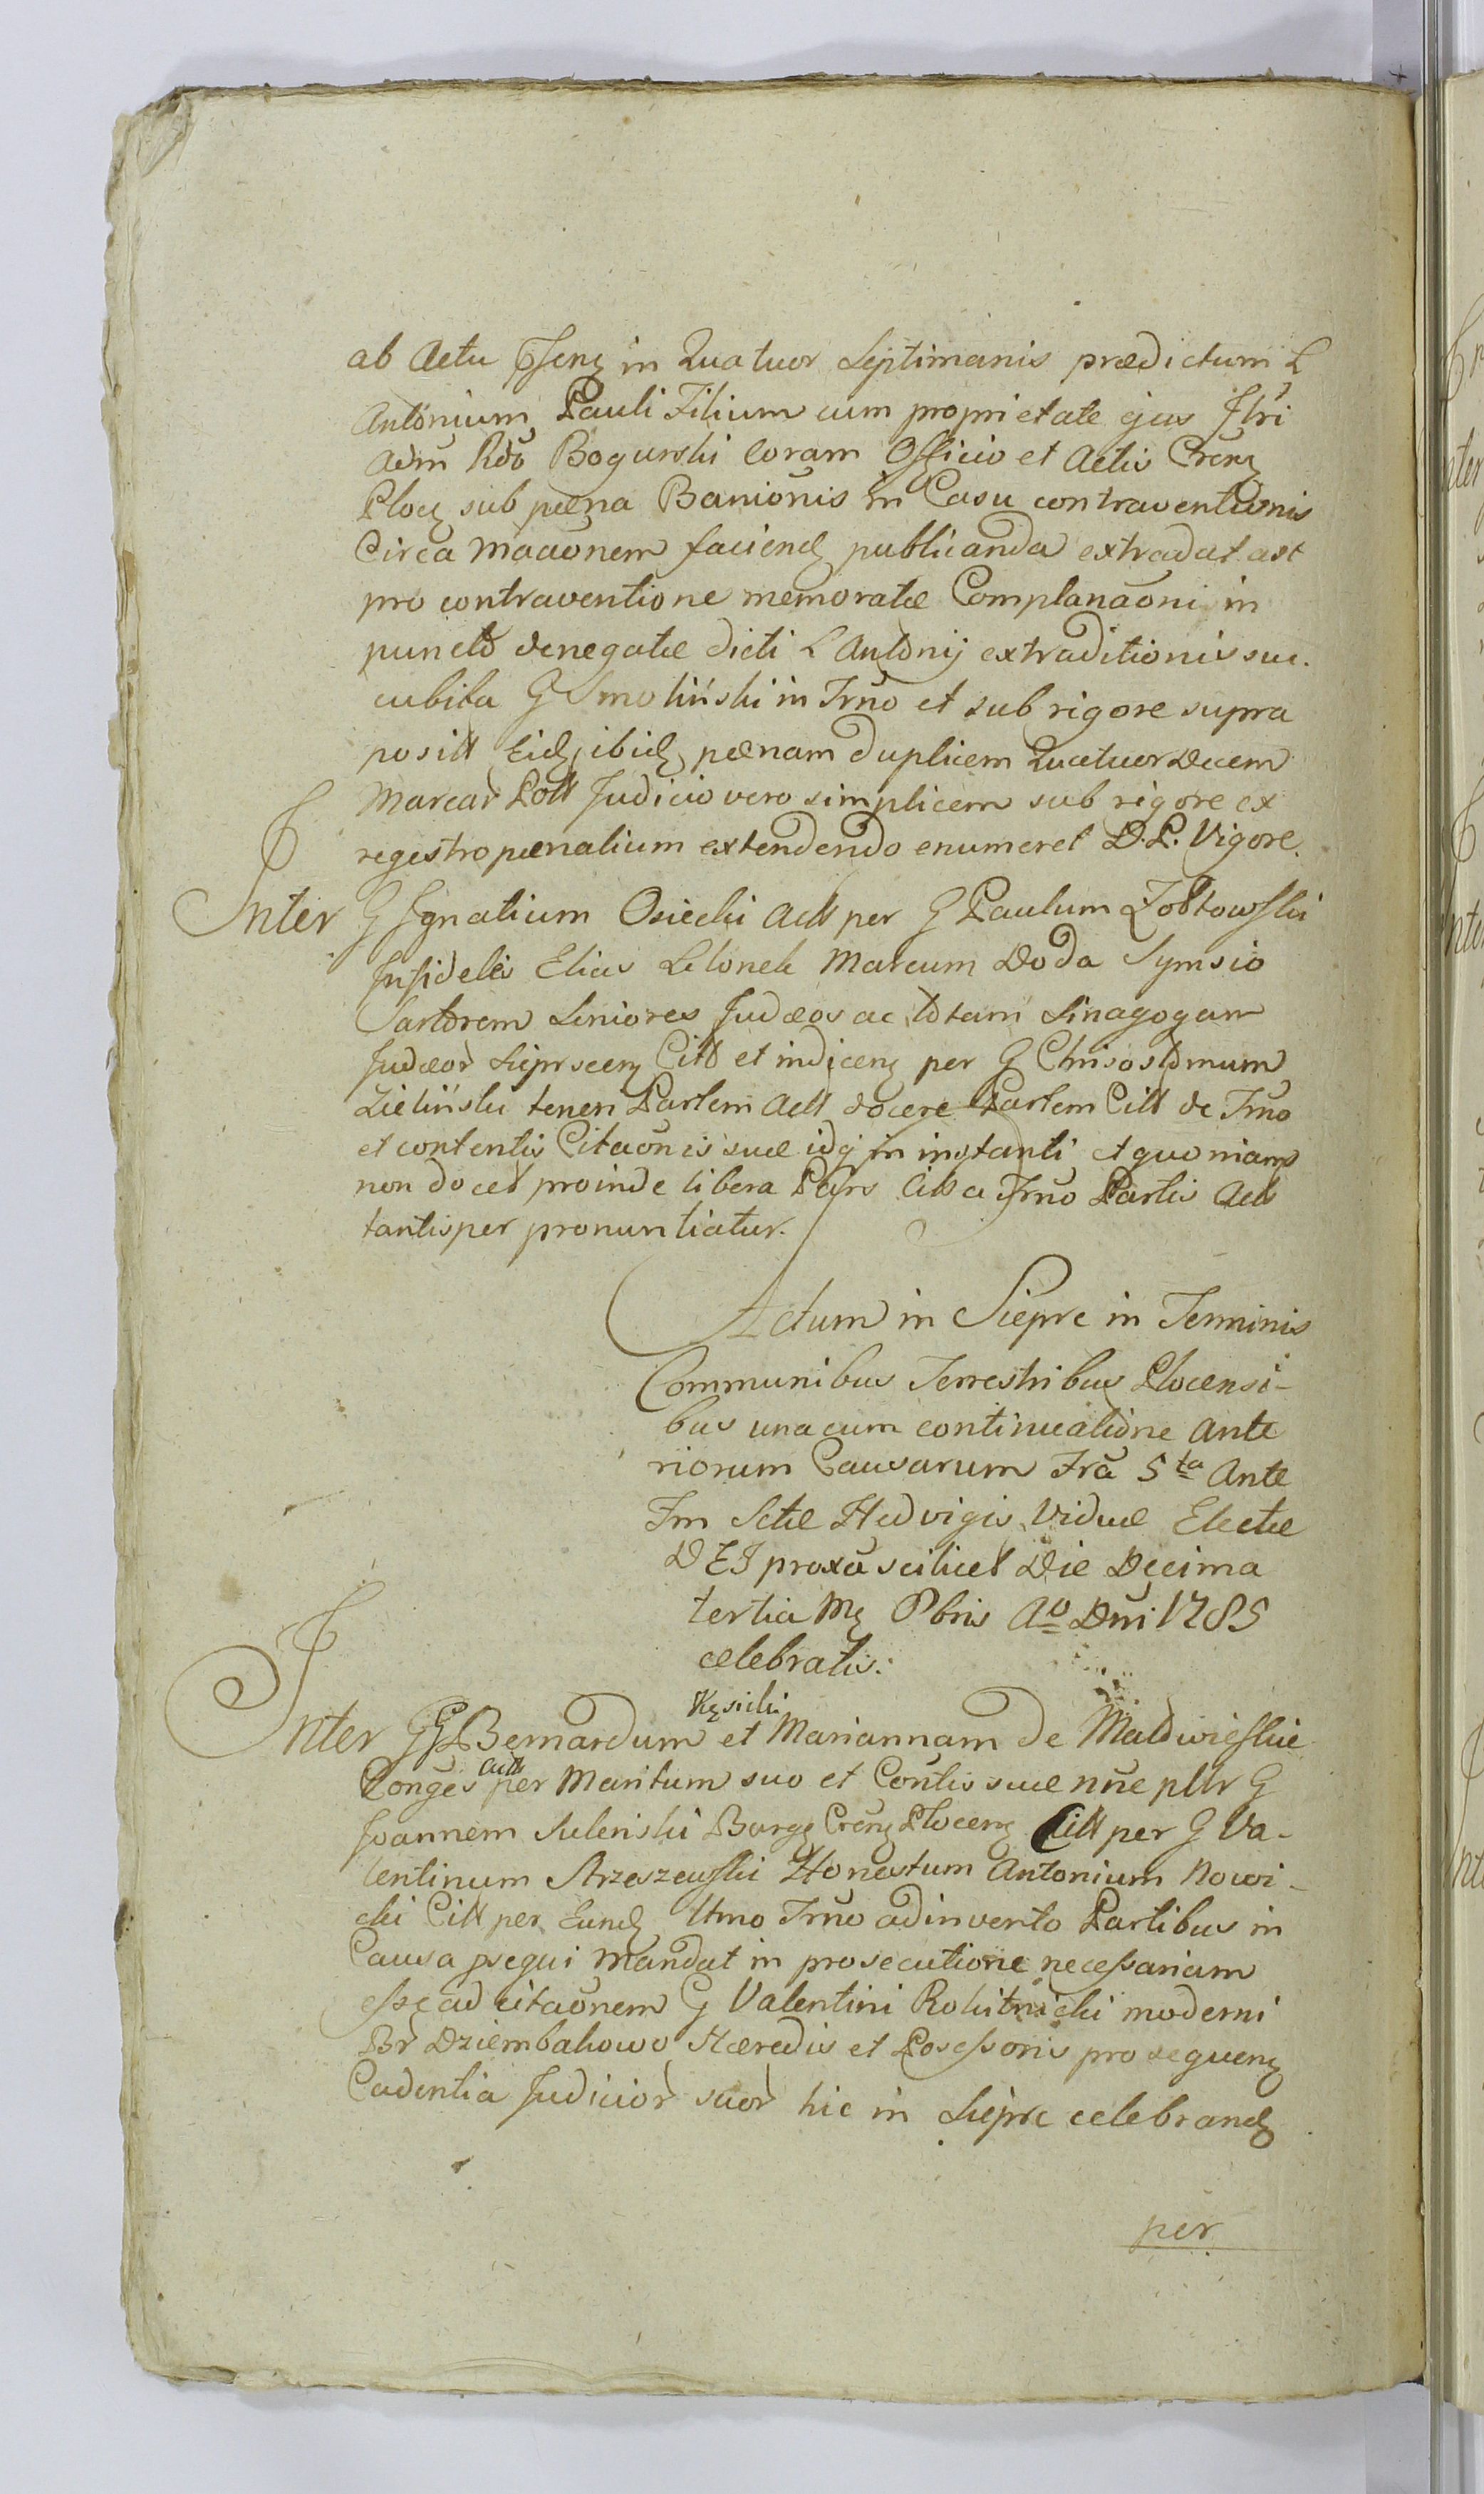 ab Actu Pseng in Quatuor Septimanis prædictum L
Antonium Pauli Filium cum proprietate ejus Jlri
Adm Rdo Bogurski coram Officio et Actis Creng
Ploc sub pœna Banionis in Casu contraventionis
Circa Maaonem faciend publicanda extradat ast
pro contraventione memoratæ Complanaoni in
puncto denegatæ dicti L Antonij extraditionis suc.
cubita G Smoliński in Trno et sub rigore supra
positt Eid ibid pœnam duplicem Quatuor Decem
Marcar Poll Judicio vero simplicem sub rigore ex
registro pœnalium extendendo enumeret D.P. Vigore.
Inter G Ignatium Osiecki Actt per G Paulum Zołtowski
Infideles Elias Lelonek Marcum Doda Symsio
Sartorem Seniores Judæos ac totam Sinagogam
Judæor Sieprceng Citt et indiceng per G Chrisostomum
Zieliński teneri Partem Actt docere Partem Citt de Trno
et contentis Citaonis suæ idq in instanti et quoniam
non docet proinde libera Pars Citt a Trno Partis Actt
tantisper pronuntiatur.
Actum in Siepre in Terminis
Communibus Terrestribus Plocensi-
bus una cum continuatione Ante
riorum Causarum Fra 5ta Ante
Fm Sctæ Hedvigis Viduæ Electæ
DEI proxa scilicet Die Decima
tertia Mq 8bris Ao Dni 1785
celebratis.
Kęsicki
Inter GG Bernardum et Mariannam de Maldwieskie
Conges actt per Maritum suo et Contis suæ nne pltr G
Joannem Sulenski Burgg Creng Ploceng Citt per G Va-
lentinum Strzeszewski Honestum Antonium Nowi-
cki Citt per Eund Utmo Trno adinvento Partibus in
Causa psequi mandat in prosecutione necessariam
esse ad citaonem G Valentini Rokitnicki moderni
Br Dziembakowo Hæredis et Posessoris pro sequeng
Cadentia Judicior suor hic in Siepre celebrand
per